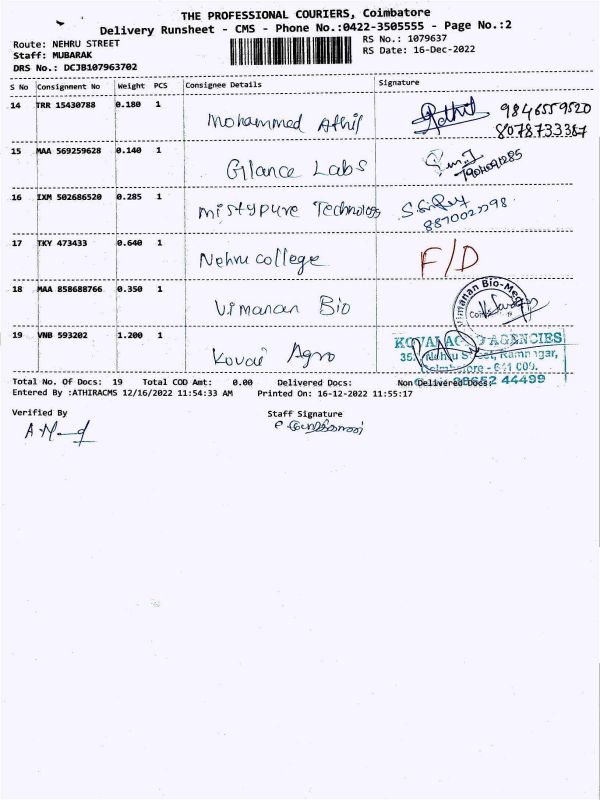 THE PROFESSIONAL COURIERS, Coimbatore
Delivery Runsheet - CMS - Phone No.:0422-3505555 - Page No.:2
Route: NEHRU STREET RS No.: 1079637
Staff: MUBARAK RS Date: 16-Dec-2022
DRS No.: DCJB107963702
S No Consignment No Weight PCS Consignee Details Signature
14 TRR 15430788 0.180 1 Mohammed Athif 9846559520
8078733367
15 MAA 569259628 0.140 1 Glance Labs
16 IXM 502686520 0.285 1 mistypure Technology
17 TKY 473433 0.640 1 Nehru college F/D
18 MAA 858688766 0.350 1 Vimanan Bio
19 VNB 593202 1.200 1 Kovai Agro
AGENCIES
Total No. Of Docs: 19 Total COD Amt: 0.00 Delivered Docs: Non Delivered Docs:
44499
Entered By :ATHIRACMS 12/16/2022 11:54:33 AM Printed On: 16-12-2022 11:55:17
Verified By Staff Signature